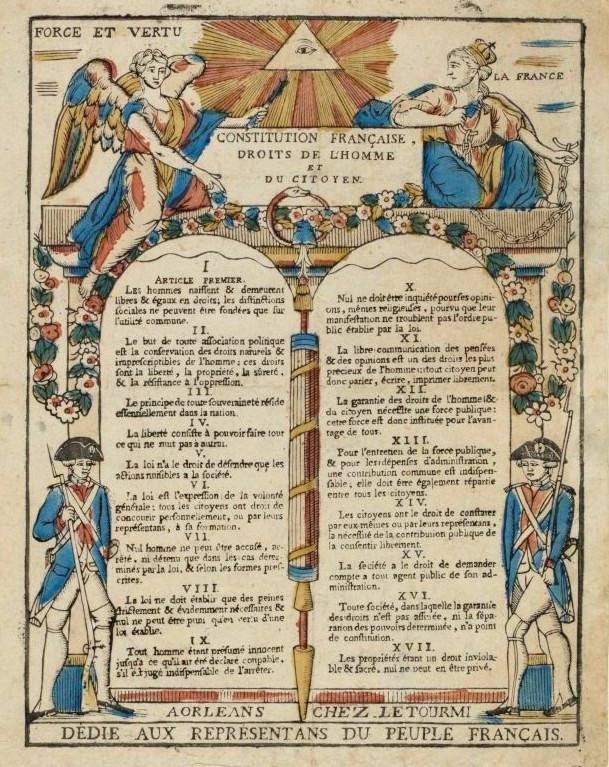 FORCE ET VERTU
LA FRANCE
CONSTITUTION FRANÇAISE,
DROITS DE L'HOMME
ET
DU CITOYEN.
I
ARTICLE PREMIER.
Les hommes naissent & demeurent
libres & égaux en droits; les distinctions
sociales ne peuvent être fondées que sur
l'utilité commune.
II.
Le but de toute association politique
est la conservation des droits naturels &
imprescriptibles de l'homme: ces droits
sont la liberté, la propriété, la sûreté,
& la résistance à l'oppression.
III.
Le principe de toute souveraineté réside
essentiellement dans la nation.
IV.
La liberté consiste à pouvoir faire tout
ce qui ne nuit pas à autrui.
V.
La loi n'a le droit de défendre que les
actions nuisibles à la société.
VI.
La loi est l'expression de la volonté
générale; tous les citoyens ont droit de
concourir personnellement, ou par leurs
représentans, à sa formation.
VII.
Nul homme ne peut être accusé, ar-
rêté, ni détenu que dans les cas déter-
minés par la loi, & selon les formes pres-
crites.
VIII.
La loi ne doit établir que des peines
strictement & évidemment nécessaires &
nul ne peut être puni qu'en vertu d'une
loi établie.
IX.
Tout homme étant présumé innocent
jusqu'a ce qu'il ait été déclaré coupable,
s'il est jugé indispensable de l'arrêter.
X.
Nul ne doit être inquiété pour ses opini-
ons, mêmes religieuses, pourvu que leur
manifestation ne troublent pas l'ordre pu-
blic établie par la loi.
XI.
La libre communication des pensées
& des opinions est un des droits les plus
précieux de l'homme: tout citoyen peut
donc parler, écrire, imprimer librement.
XII.
La garantie des droits de l'homme &
du citoyen nécessite une force publique:
cette force est donc instituée pour l'avan-
tage de tous.
XIII.
Pour l'entretien de la force publique,
& pour les dépenses d'administration,
une contribution commune est indispen-
sable; elle doit être également répartie
entre tous les citoyens.
XIV.
Les citoyens ont le droit de constater
par eux-mêmes ou par leurs représentans,
la nécessité de la contribution publique de
la consentir librement.
XV.
La société a le droit de demander
compte a tout agent public de son ad-
ministration.
XVI.
Toute société, dans laquelle la garantie
des droits n'est pas assurée, ni la sépa-
ration des pouvoirs déterminée, n'a point
de constitution.
XVII.
Les propriétés étant un droit inviola-
ble & sacré, nul ne peut en être privé.
A ORLEANS CHEZ LETOURMI
DÉDIÉ AUX REPRÉSENTANS DU PEUPLE FRANÇAIS.